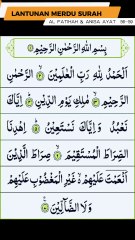 LANTUNAN MERDU SURAH
AL FATIHAH & ANISA AYAT
بِسْمِ اللَّهِ الرَّحْمَٰنِ الرَّحِيمِ ۝١
الْحَمْدُ لِلَّهِ رَبِّ الْعَالَمِينَ ۝٢ الرَّحْمَٰنِ
الرَّحِيمِ ۝٣ مَالِكِ يَوْمِ الدِّينِ ۝٤ إِيَّاكَ
نَعْبُدُ وَإِيَّاكَ نَسْتَعِينُ ۝٥ اهْدِنَا
الصِّرَاطَ الْمُسْتَقِيمَ ۝٦ صِرَاطَ الَّذِينَ
أَنْعَمْتَ عَلَيْهِمْ غَيْرِ الْمَغْضُوبِ عَلَيْهِمْ
وَلَا الضَّالِّينَ ۝٧